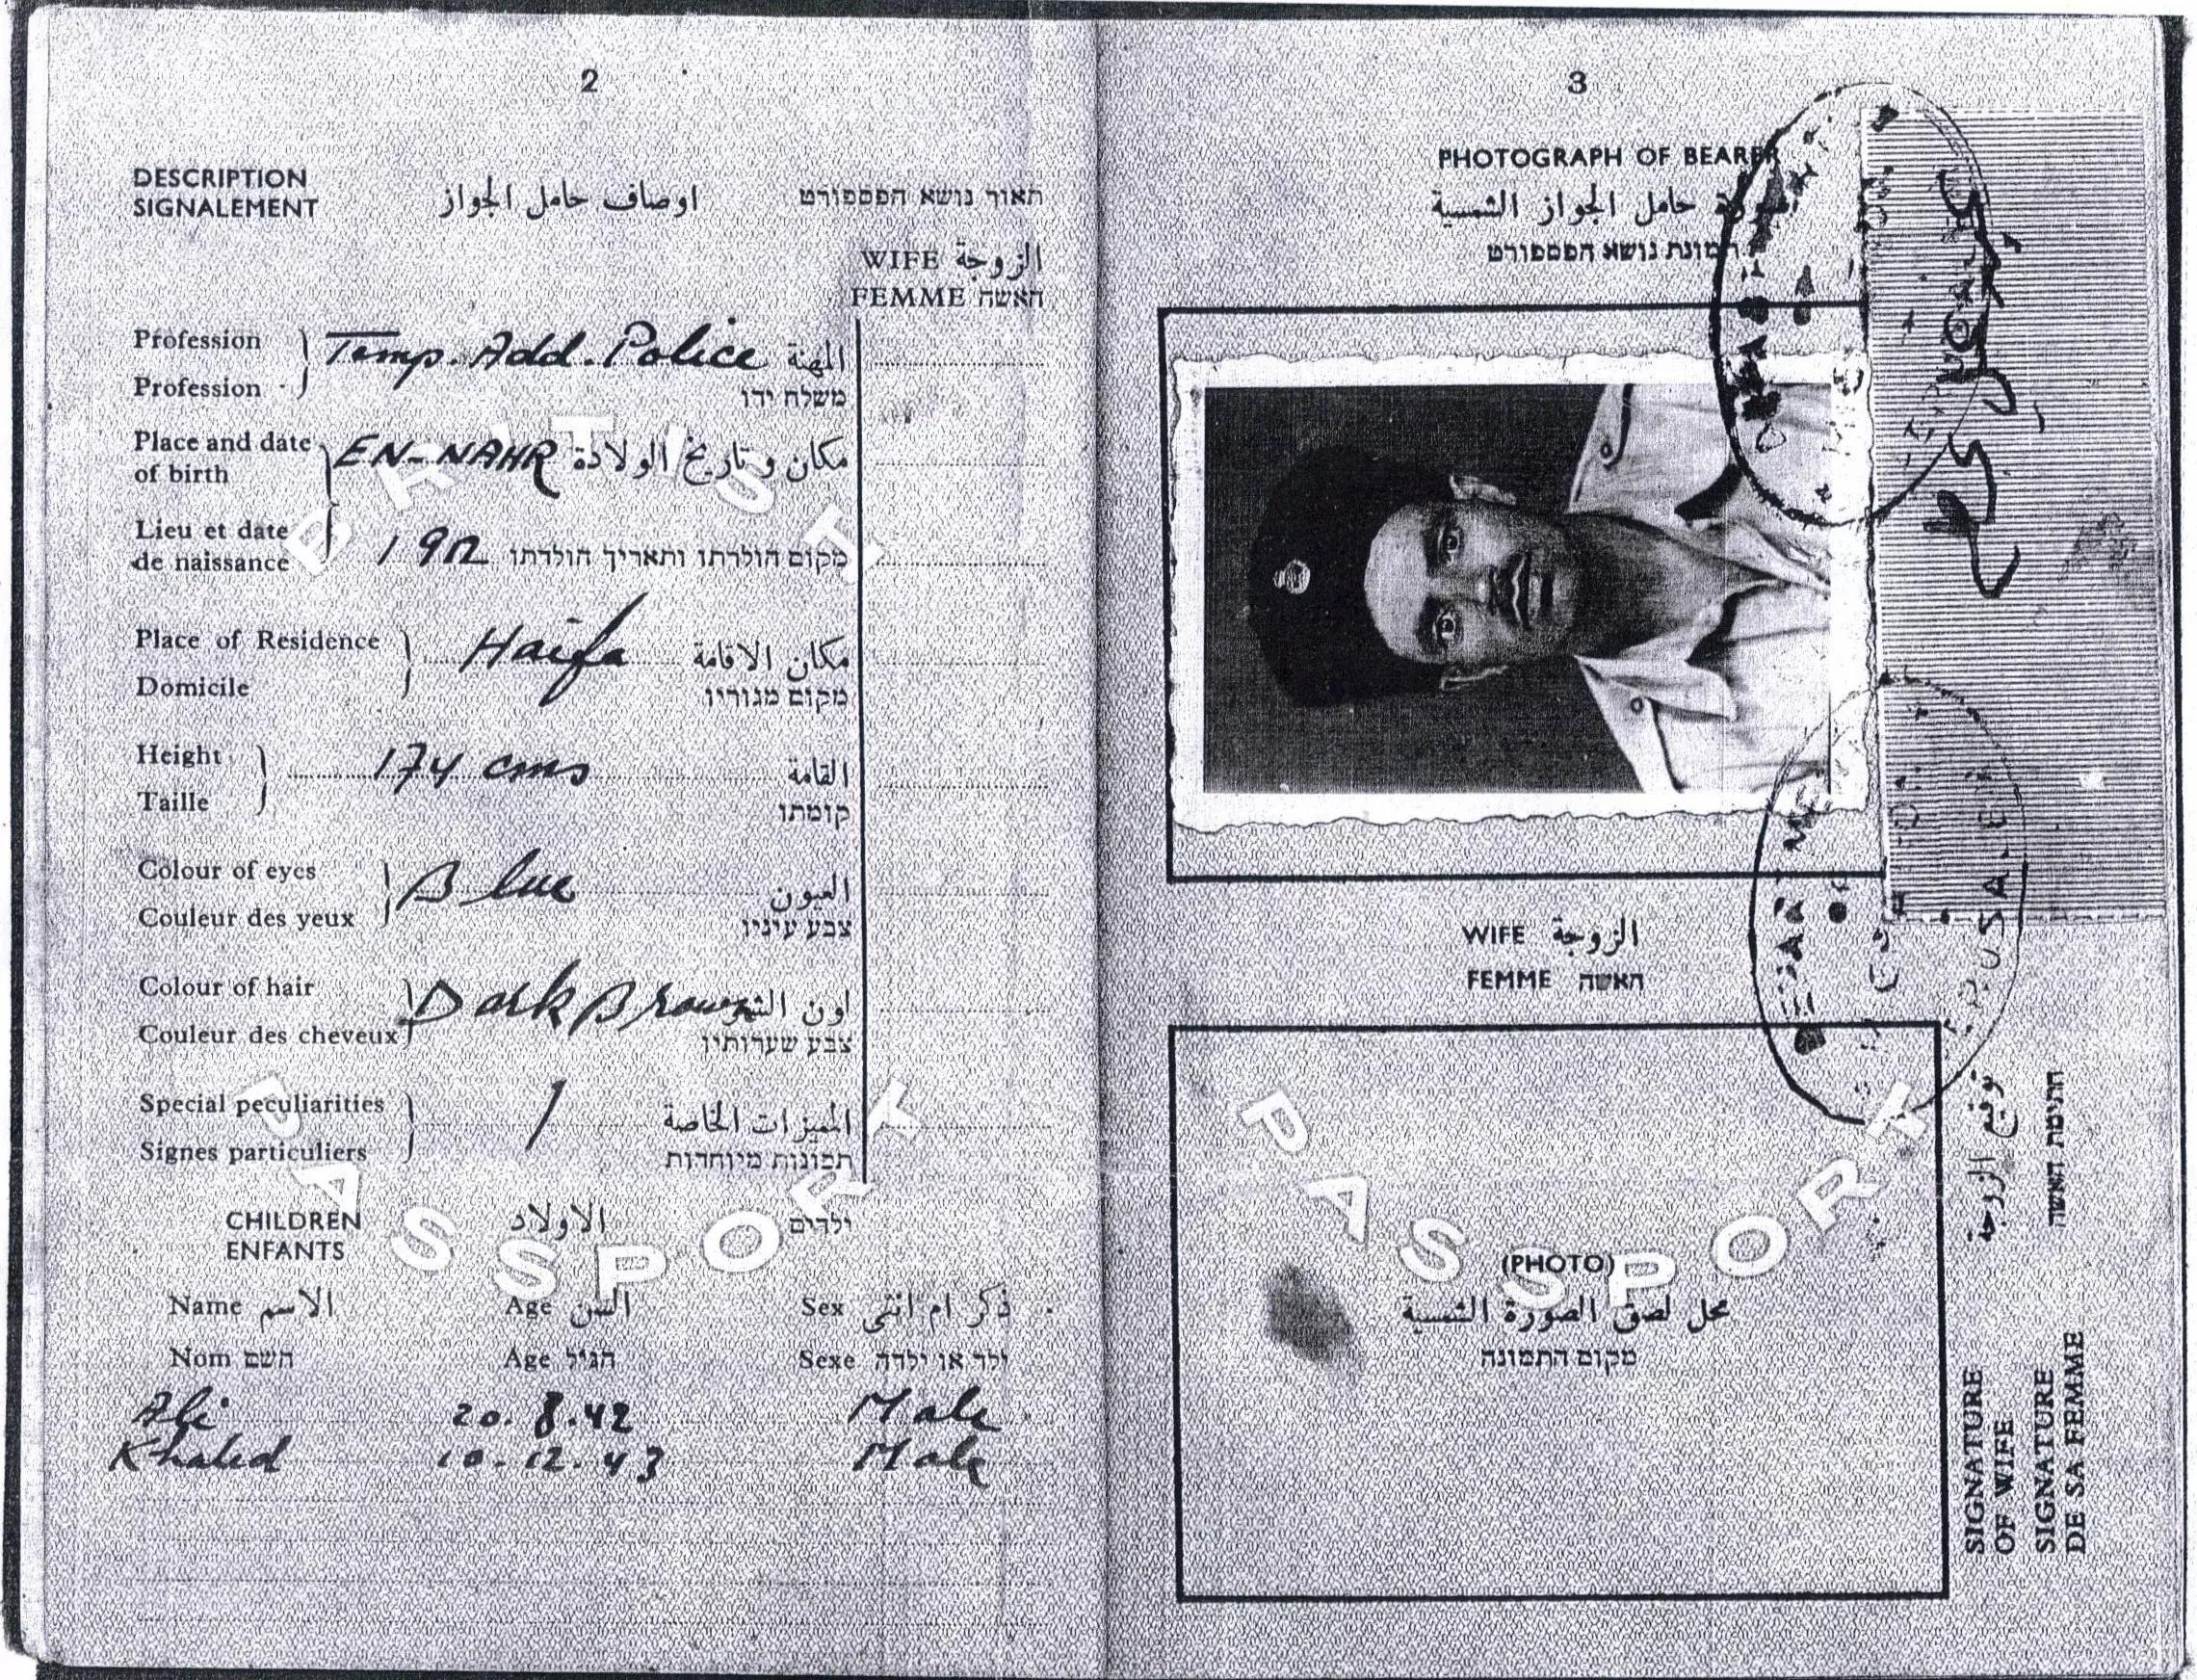 2
DESCRIPTION اوصاف حامل الجواز תאור נושא הפספורט
SIGNALEMENT
WIFE الزوجة
FEMME האשה
Profession Temp. Add. Police المهنة
Profession משלח ידו
Place and date of birth EN-NAHR مكان وتاريخ الولادة
Lieu et date de naissance 1912 מקום הולדתו ותאריך הולדתו
Place of Residence Haifa مكان الاقامة
Domicile מקום מגוריו
Height 174 cms القامة
Taille קומתו
Colour of eyes Blue العيون
Couleur des yeux צבע עיניו
Colour of hair Dark Brown لون الشعر
Couleur des cheveux צבע שערותיו
Special peculiarities / المميزات الخاصة
Signes particuliers תכונות מיוחדות
CHILDREN الاولاد ילדים
ENFANTS
Name الاسم Age السن Sex ذكر ام انثى
Nom השם Age הגיל Sexe ילד או ילדה
Ali 20.8.42 Male
Khaled 10.12.43 Male
BRITISH
PASSPORT
3
PHOTOGRAPH OF BEARER
صورة حامل الجواز الشمسية
תמונת נושא הפספורט
WIFE الزوجة
FEMME האשה
PASSPORT
(PHOTO)
محل لصق الصورة الشمسية
מקום התמונה
توقيع الزوجة
חתימת האשה
SIGNATURE
OF WIFE
SIGNATURE
DE SA FEMME